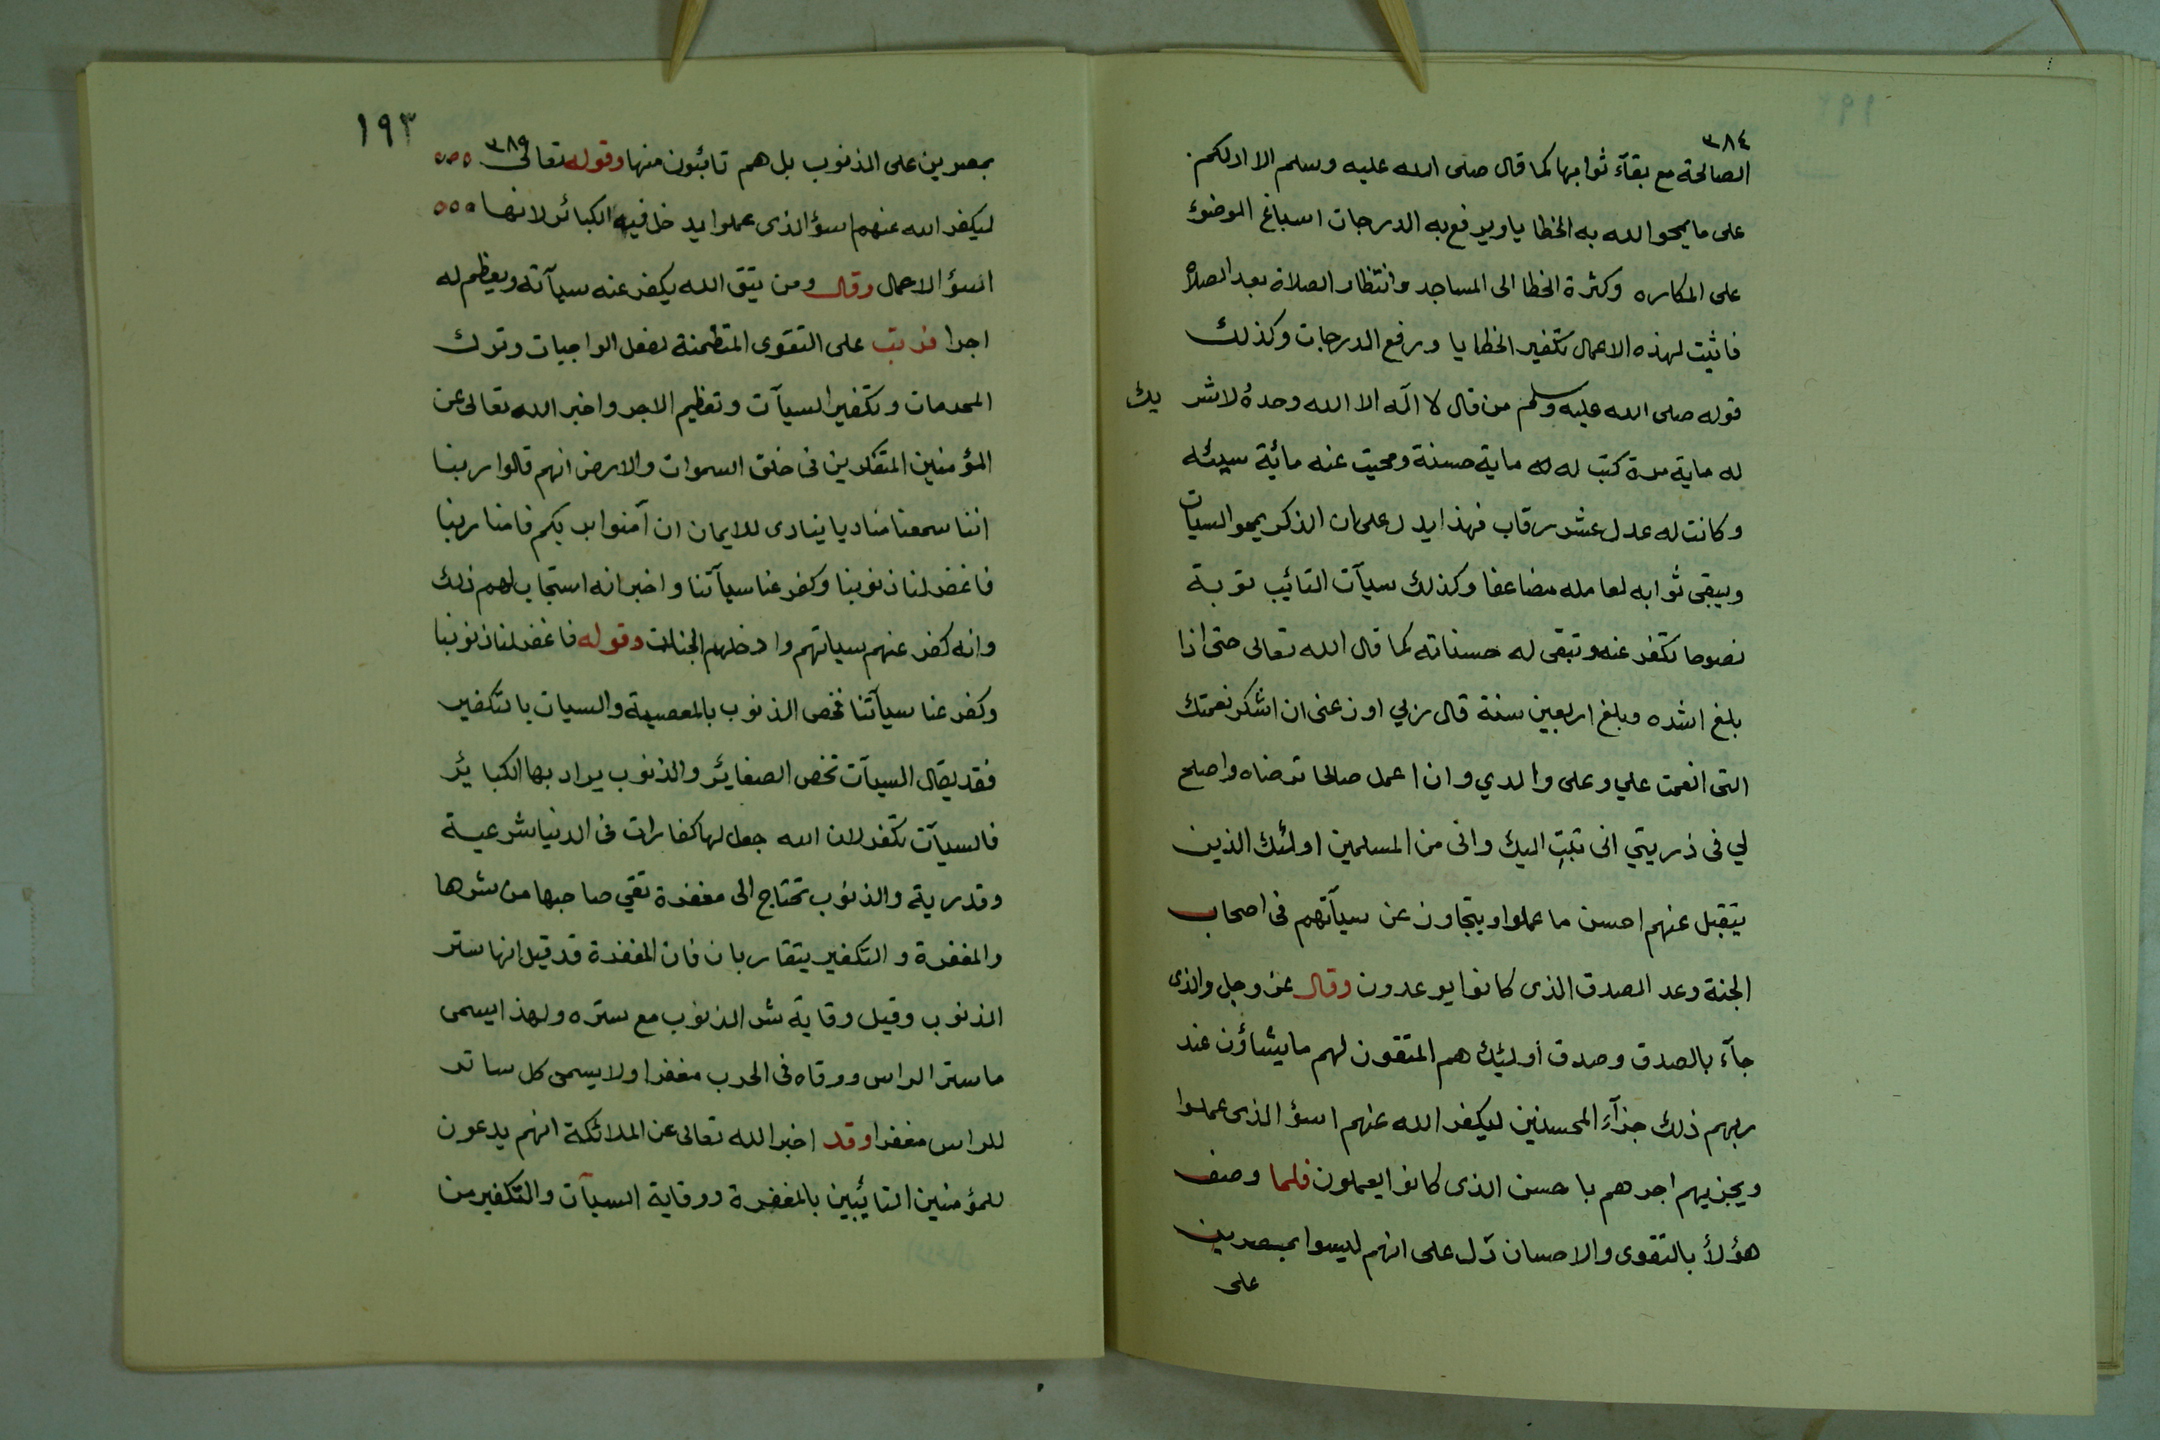 ٣٨٤
الصالحة مع بقآء ثوابها كما قال صلى الله عليه وسلم الا ادلكم
على ما يمحوا الله به الخطايا ويرفع به الدرجات اسباغ الوضوء
على المكاره وكثرة الخطا الى المساجد وانتظار الصلاة بعد الصلاه
فاثبت لهذه الاعمال تكفير الخطايا ورفع الدرجات وكذلك
قوله صلى الله عليه وسلم من قال لا اله الا الله وحدهُ لا شريك
له ماية مرة كتب له ماية حسنة ومحيت عنه مائة سيئه
وكانت له عدل عشر رقاب فهذا يدل على ان الذكر يمحو السيآت
ويبقى ثوابه لعامله مضاعفا وكذلك سيآت التائيب توبة
نصوحا تكفر عنه وتبقى له حسناته كما قال الله تعالى حتى اذا
بلغ اشده وبلغ اربعين سنة قال ربي اوزعنى ان اشكر نعمتك
التى انعمت علي وعلى والدي وان اعمل صالحا ترضاه واصلح
لي فى ذريتي انى تبت اليك وانى من المسلمين اولئك الذين
يتقبل عنهم احسن ما عملوا ويتجاوز عن سيآتهم فى اصحاب
الجنة وعد الصدق الذى كانوا يوعدون وقال عز وجل والذى
جآء بالصدق وصدق أوليئك هم المتقون لهم ما يشاؤن عند
ربهم ذلك جزآء المحسنين ليكفر الله عنهم اسؤ الذى عملوا
ويجزيهم اجرهم باحسن الذى كانوا يعملون فلما وصف
هؤلأ بالتقوى والاحسان دل على انهم ليسوا بمصرين
على
١٩٣
٣٨٥
بمصرين على الذنوب بل هم تائبون منها وقوله تعالى
ليكفر الله عنهم اسؤ الذى عملوا يدخل فيه الكبائر لانها
اسؤ الاعمال وقال ومن يتق الله يكفر عنه سيآته ويعظم له
اجرا فرتب على التقوى المتظمنة لفعل الواجبات وترك
المحرمات وتكفير السيآت وتعظيم الاجر واخبر الله تعالى عن
المؤمنين المتفكرين فى خلق السموات والارض انهم قالوا ربنا
اننا سمعنا مناديا ينادى للايمان ان آمنوا بربكم فامنا ربنا
فاغفر لنا ذنوبنا وكفر عنا سيآتنا واخبر انه استجاب لهم ذلك
وانه كفر عنهم سياتهم وادخلهم الجنات وقوله فاغفر لنا ذنوبنا
وكفر عنا سيآتنا فخص الذنوب بالمعصية والسيات بالتكفير
فقد يقال السيآت تخص الصغايئر والذنوب يراد بها الكبايئر
فالسيآت تكفر لان الله جعل لها كفارات فى الدنيا شرعية
وقدرية والذنوب تحتاج الى مغفرة تقي صاحبها من شرها
والمغفرة والتكفير يتقاربان فان المغفرة قد قيل انها ستر
الذنوب وقيل وقاية شر الذنوب مع ستره ولهذا يسمى
ما ستر الراس ووقاه فى الحرب مغفرا ولا يسمى كل ساتر
للراس مغفرا وقد اخبر الله تعالى عن الملائكة انهم يدعون
للمؤمنين التائيبين بالمغفرة ووقاية السيآت والتكفير من